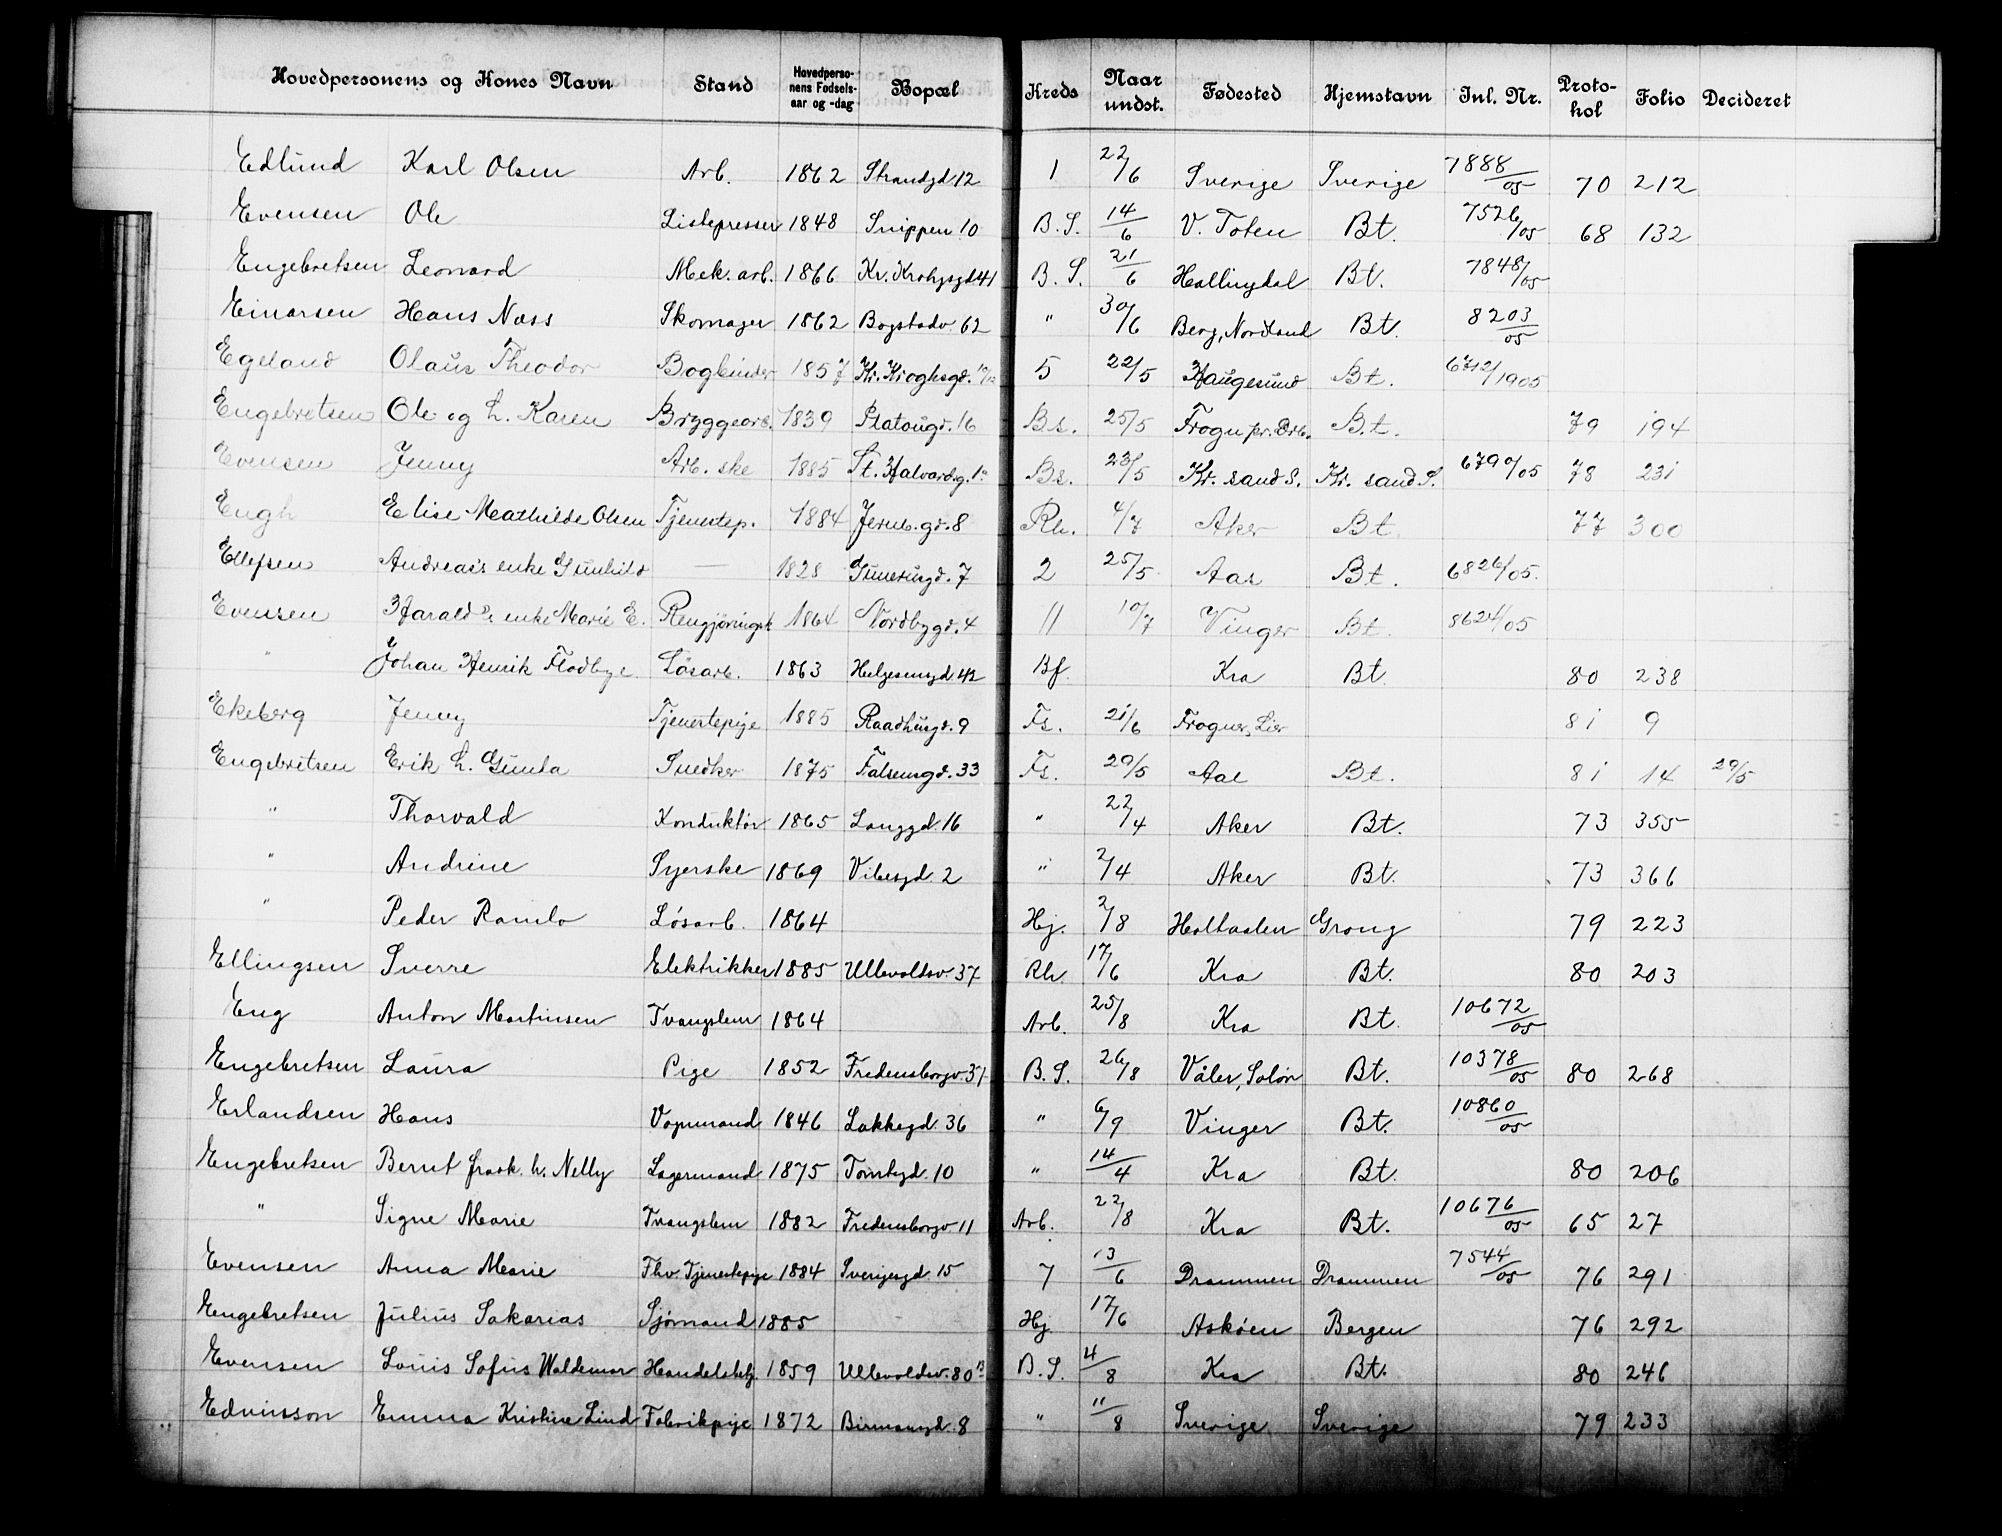 Hovedpersonens og Kones Navn Stand Hovedpersonens Fødselsaar og -dag Bopæl Kreds Naar undst. Fødested Hjemstavn Inl. Nr. Protokol Folio Decideret
Edlund Karl Olsen Arb. 1862 Strandgd 12 1 22/6 Sverige Sverige 7888/05 70 212
Evensen Ole Listepresser 1848 Snippen 10 B.S. 14/6 V. Toten Bt. 7526/05 68 132
Engebretsen Leonard Mek. arb. 1866 Kr. Krohgsgd 41 B.S. 21/6 Hallingdal Bt. 7848/05
Einarsen Hans Næss Skomager 1862 Bogstadv. 62 " 30/6 Berg, Nordland Bt. 8203/05
Egeland Olaus Theodor Bogbinder 1857 Kr. Kroghsgd. 5 22/5 Haugesund Bt. 6712/1905
Engebretsen Ole og h. Karen Bryggearb. 1839 Platougd. 16 Bs. 25/5 Frogn pr. Drb. Bt. 79 194
Evensen Jenny Arb. ske 1885 St. Halvardsg. 1a Bs. 23/5 Kr. sand S. Kr. sand S. 6790/05 78 231
Engh Elise Mathilde Olsen Tjenestep. 1884 Jernb. gd. 8 Rh. 4/7 Aker Bt. 77 300
Ellefsen Andreas's enke Gunhild — 1828 Grünerusgd. 7 2 25/5 Aas Bt. 6826/05
Evensen Harald's enke Marie E. Rengjøringsk 1864 Nordbygd. 4 11 10/7 Vinger Bt. 8624/05
" Johan Henrik Flodbye Løsarb. 1863 Helgesensgd. 42 Bf. Kra Bt. 80 238
Ekeberg Jenny Tjenestepige 1885 Raadhusgd. 9 Fs. 21/6 Frogner, Lier 81 9
Engebretsen Erik h. Gunda Snedker 1875 Falsensgd. 33 Fs. 29/5 Aal Bt. 81 14 29/5
" Thorvald Konduktør 1865 Langgd. 16 " 22/4 Aker Bt. 73 355
" Andrine Syerske 1869 Vibesgd. 2 " 2/4 Aker Bt. 73 366
" Peder Ramlo Løsarb. 1864 Hj. 2/8 Holtaalen Grong 79 223
Ellingsen Sverre Elektrikker 1885 Ullevoldsv. 37 Rh. 17/6 Kra Bt. 80 203
Eng Anton Martinsen Tvangslem 1864 Arb. 25/8 Kra Bt. 10672/05
Engebretsen Laura Pige 1852 Fredensborgv. 31 B.S. 26/8 Våler, Solør Bt. 10378/05 80 268
Erlandsen Hans Vognmand 1846 Lakkegd. 36 " 6/9 Vinger Bt. 10860/05
Engebretsen Bernt frask. h. Nelly Lagermand 1875 Tomtegd. 10 " 14/4 Kra Bt. 80 206
" Signe Marie Tvangslem 1882 Fredensborgv. 11 Arb. 22/8 Kra Bt. 10676/05 65 27
Evensen Anna Marie Fhv. Tjenestepige 1884 Sverigesgd. 15 7 13/6 Drammen Drammen 7544/05 76 291
Engebretsen Julius Sakarias Sjømand 1885 Hj. 17/6 Askøen Bergen 76 292
Evensen Louis Sofus Waldemar Handelsbetj. 1859 Ullevoldsv. 80 B B.S. 4/8 Kra Bt. 80 246
Edvinsson Emma Kristine Lind Fabrikpige 1872 Birmansgd. 8 " 11/8 Sverige Sverige 79 233